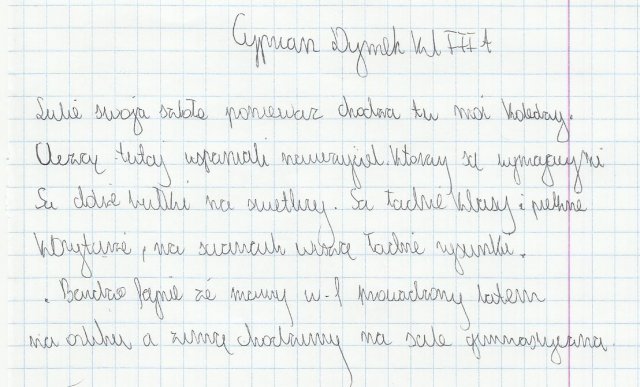 Cyprian Dymek kl III A
Lubie swoja szkołe poniewaz chodza tu moi koledzy.
Ucza tutaj wspaniali nauczyciel. Ktorzy są wymagający mi
Sa dobre bułki na swetlicy. Sa ładne klasy i piekne
korytarze, na scianach wiszą ładne rysunki.
. Bardzo fajnie że mamy w-f prowadzony latem
na orliku a zimą chodzimy na sale gimnastyczna.